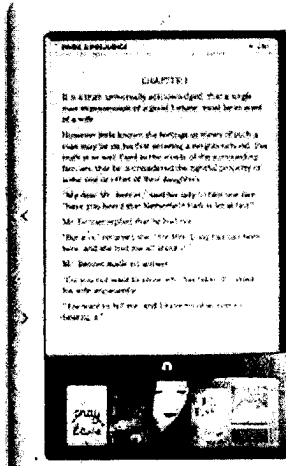 PRIDE & PREJUDICE
CHAPTER I
It is a truth universally acknowledged, that a single
man in possession of a good fortune, must be in want
of a wife.
However little known the feelings or views of such a
man may be on his first entering a neighbourhood, this
truth is so well fixed in the minds of the surrounding
families, that he is considered the rightful property of
some one or other of their daughters.
"My dear Mr. Bennet," said his lady to him one day,
"have you heard that Netherfield Park is let at last?"
Mr. Bennet replied that he had not.
"But it is," returned she; "for Mrs. Long has just been
here, and she told me all about it."
Mr. Bennet made no answer.
"Do you not want to know who has taken it?" cried
his wife impatiently.
"You want to tell me, and I have no objection to
hearing it."
pray
love